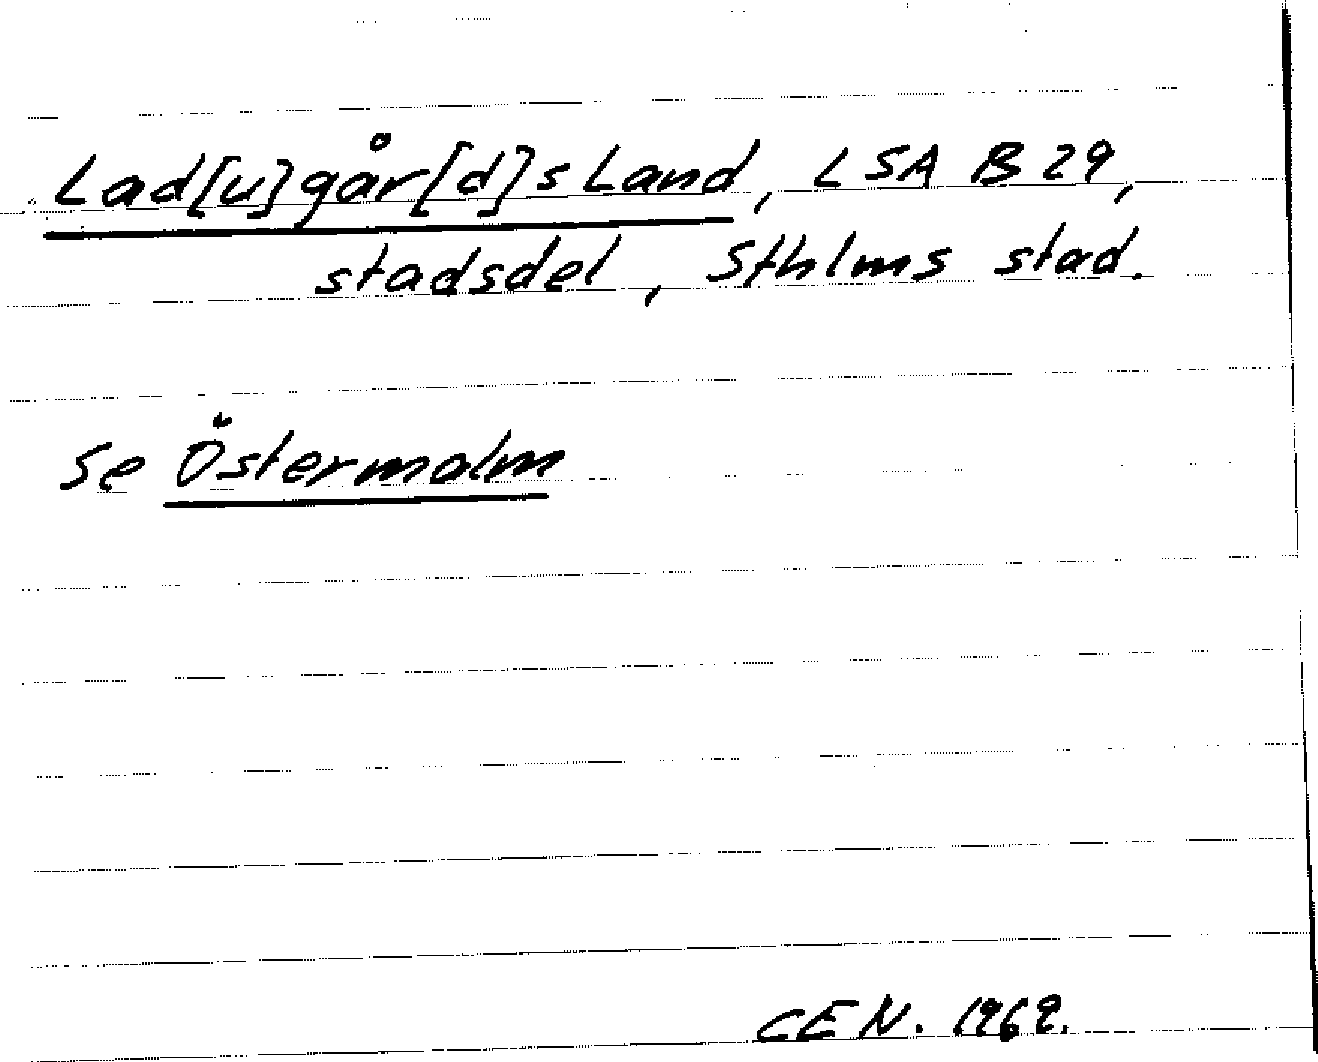 Lad[u]går[d]s Land, LSA B 29,
stadsdel, Sthlms stad.
Se Östermalm
CEN. 1969.